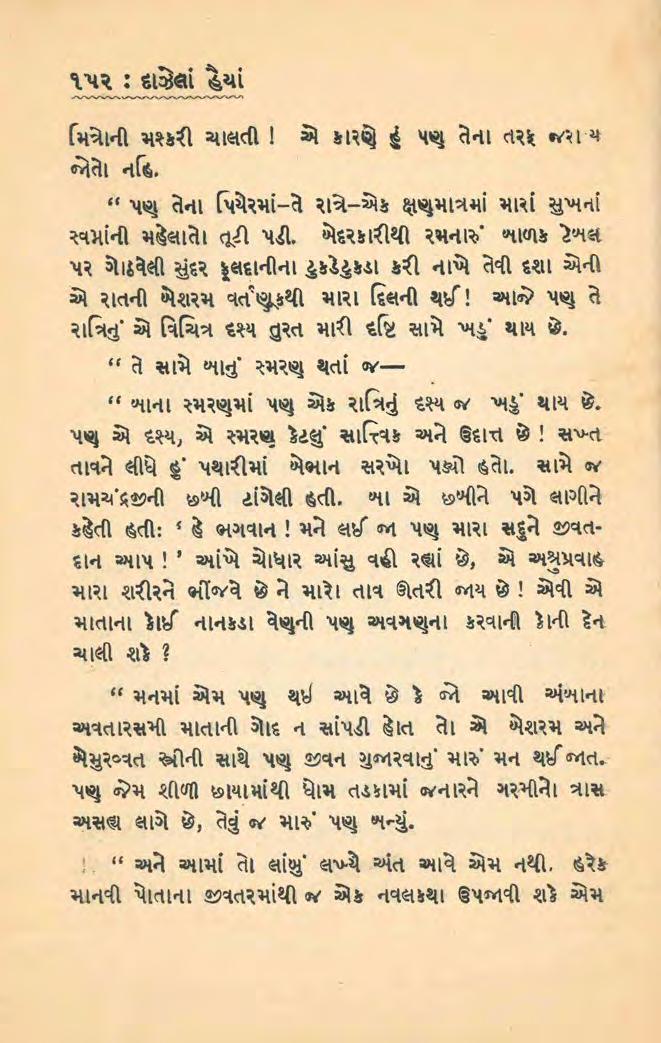 ૧૫૨ : દાઝેલાં હૈયાં
મિત્રોની મશ્કરી ચાલતી ! એ કારણે હું પણ તેના તરફ જરા ય
જોતો નહિ.
“ પણ તેના પિયેરમાં–તે રાત્રે–એક ક્ષણમાત્રમાં મારાં સુખનાં
સ્વપ્નાંની મહેલાતો તૂટી પડી. બેદરકારીથી રમનારું બાળક ટેબલ
પર ગોઠવેલી સુંદર ફૂલદાનીના ટુકડેટુકડા કરી નાખે તેવી દશા એની
એ રાતની બેશરમ વર્તણૂકથી મારા દિલની થઈ ! આજે પણ તે
રાત્રિનું એ વિચિત્ર દૃશ્ય તુરત મારી દૃષ્ટિ સામે ખડું થાય છે.
“ તે સામે બાનું સ્મરણ થતાં જ—
“ બાના સ્મરણમાં પણ એક રાત્રિનું દૃશ્ય જ ખડું થાય છે.
પણ એ દૃશ્ય, એ સ્મરણ કેટલું સાત્ત્વિક અને ઉદાત્ત છે ! સખ્ત
તાવને લીધે હું પથારીમાં બેભાન સરખો પડ્યો હતો. સામે જ
રામચંદ્રજીની છબી ટાંગેલી હતી. બા એ છબીને પગે લાગીને
કહેતી હતી: ‘ હે ભગવાન ! મને લઈ જા પણ મારા સદુને જીવત-
દાન આપ ! ’ આંખે ચોધાર આંસુ વહી રહ્યાં છે, એ અશ્રુપ્રવાહ
મારા શરીરને ભીંજવે છે ને મારો તાવ ઊતરી જાય છે ! એવી એ
માતાના કોઈ નાનકડા વેણની પણ અવગણના કરવાની કોની દેન
ચાલી શકે ?
“ મનમાં એમ પણ થઈ આવે છે કે જો આવી અંબાના
અવતારસમી માતાની ગોદ ન સાંપડી હોત તો એ બેશરમ અને
બેમુરવ્વત સ્ત્રીની સાથે પણ જીવન ગુજારવાનું મારું મન થઈ જાત.
પણ જેમ શીળી છાયામાંથી ધોમ તડકામાં જનારને ગરમીનો ત્રાસ
અસહ્ય લાગે છે, તેવું જ મારું પણ બન્યું.
“ અને આમાં તો લાંબું લખ્યે અંત આવે એમ નથી. હરેક
માનવી પોતાના જીવતરમાંથી જ એક નવલકથા ઉપજાવી શકે એમ